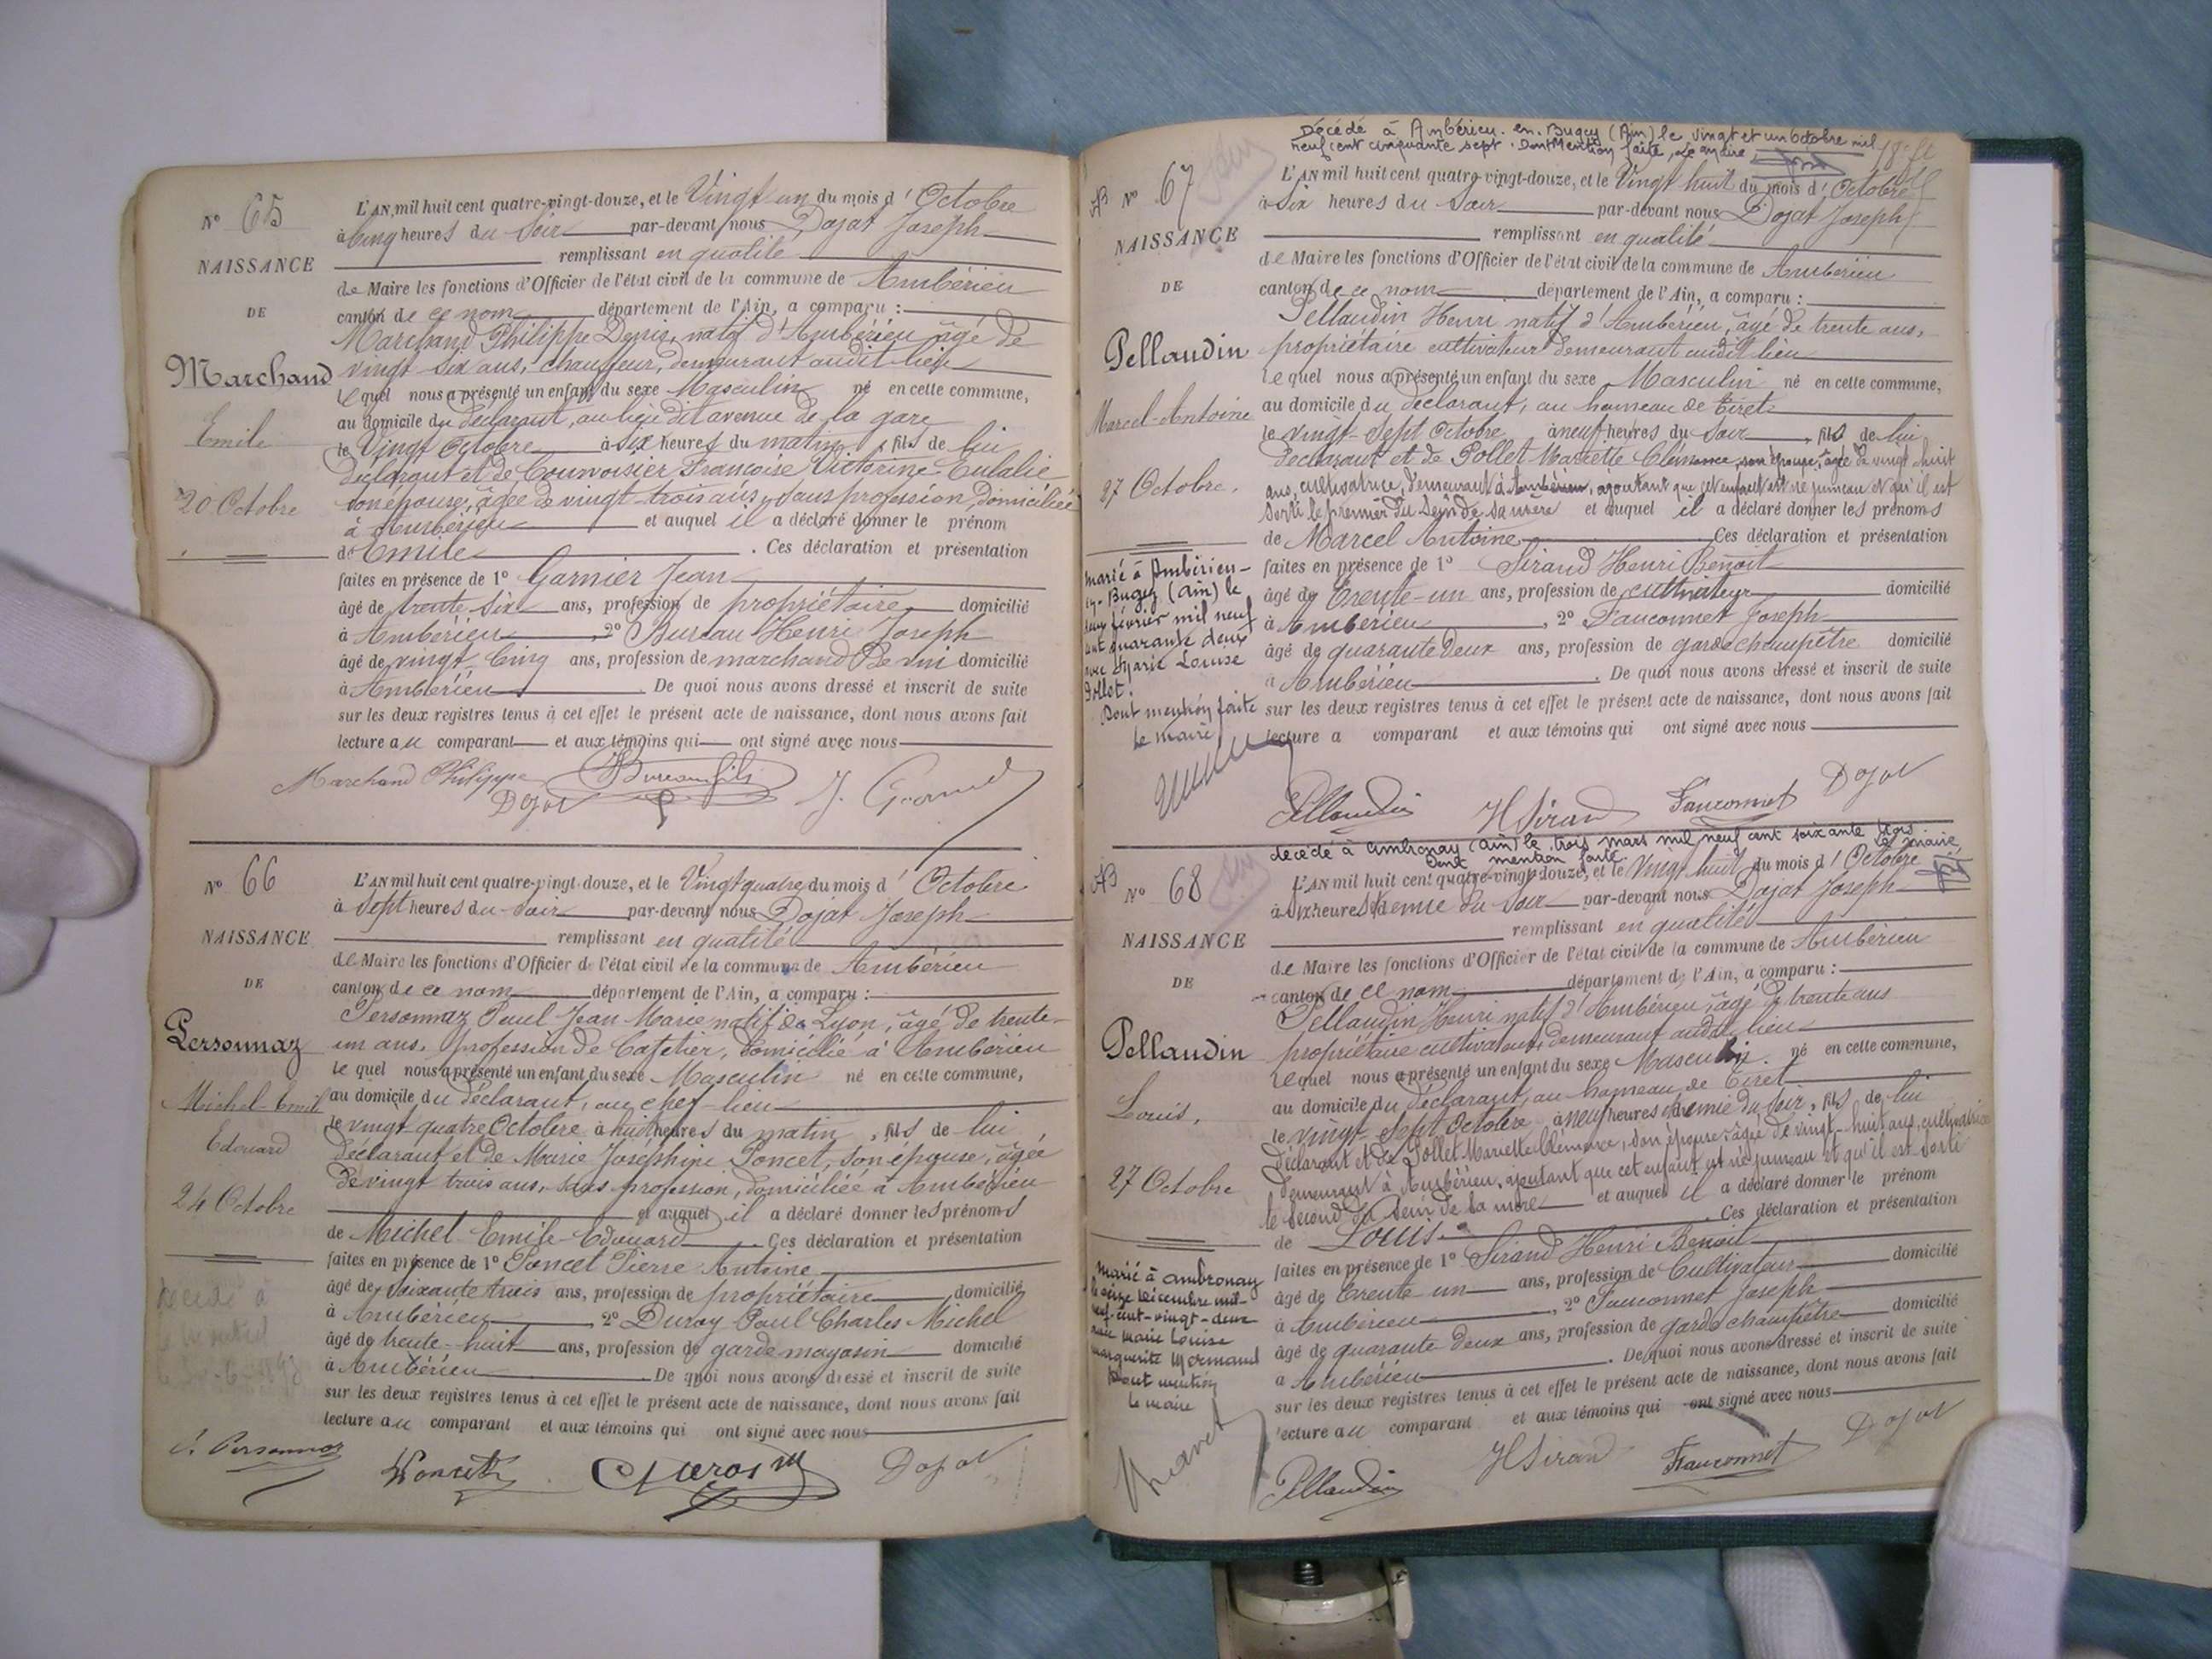 N° 65
NAISSANCE
DE
Marchand
Emile
20 Octobre
L'AN mil huit cent quatre-vingt-douze, et le Vingt un du mois d'Octobre
à Cinq heures du Soir par-devant nous Dojat Joseph
remplissant en qualité
de Maire les fonctions d'Officier de l'état civil de la commune de Ambérieu
canton de ce nom département de l'Ain, a comparu :
Marchand Philippe Denis, natif d'Ambérieu âgé de
vingt six ans, chauffeur, demeurant audit lieu
lequel nous a présenté un enfant du sexe Masculin né en cette commune,
au domicile du déclarant, au lieu dit avenue de la gare
le Vingt Octobre à six heures du matin, fils de lui
déclarant et de Courvoisier Françoise Victorine Eulalie
son épouse, âgée de vingt-trois ans, sans profession, domiciliée
à Ambérieu et auquel il a déclaré donner le prénom
de Emile . Ces déclaration et présentation
faites en présence de 1° Garnier Jean
âgé de trente six ans, profession de propriétaire domicilié
à Ambérieu, 2° Bureau Henri Joseph
âgé de vingt-Cinq ans, profession de marchand de vin domicilié
à Ambérieu . De quoi nous avons dressé et inscrit de suite
sur les deux registres tenus à cet effet le présent acte de naissance, dont nous avons fait
lecture au comparant et aux témoins qui ont signé avec nous
Marchand Philippe Bureau fils
Dojat
N° 66
NAISSANCE
DE
Personnaz
Michel-Emile
Edouard
24 Octobre
L'AN mil huit cent quatre-vingt-douze, et le Vingt quatre du mois d'Octobre
à Sept heures du Soir par-devant nous Dojat Joseph
remplissant en qualité
de Maire les fonctions d'Officier de l'état civil de la commune de Ambérieu
canton de ce nom département de l'Ain, a comparu :
Personnaz Paul Jean Marie natif de Lyon, âgé de trente-
un ans, profession de Cafetier, domicilié à Ambérieu
lequel nous a présenté un enfant du sexe Masculin né en cette commune,
au domicile du déclarant, au chef-lieu
le vingt quatre Octobre à huit heures du matin, fils de lui
déclarant et de Marie Joséphine Poncet, son épouse, âgée
de vingt trois ans, sans profession, domiciliée à Ambérieu
et auquel il a déclaré donner les prénoms
de Michel Emile Edouard . Ces déclaration et présentation
faites en présence de 1° Poncet Pierre Antoine
âgé de soixante trois ans, profession de propriétaire domicilié
à Ambérieu, 2° Duroy Paul Charles Michel
âgé de trente-huit ans, profession de garde magasin domicilié
à Ambérieu . De quoi nous avons dressé et inscrit de suite
sur les deux registres tenus à cet effet le présent acte de naissance, dont nous avons fait
lecture au comparant et aux témoins qui ont signé avec nous
P. Personnaz Dojat
Décédé à Ambérieu-en-Bugey (Ain) le vingt et un Octobre mil
neuf cent cinquante sept. Dont Mention faite, Le Maire
N° 67
NAISSANCE
DE
Pellaudin
Marcel-Antoine
27 Octobre.
marié à Ambérieu-
en-Bugey (Ain) le
février mil neuf
cent quarante deux
avec Marie Louise
Pollet.
Dont mention faite
Le maire
L'AN mil huit cent quatre-vingt-douze, et le Vingt huit du mois d'Octobre
à six heures du Soir par-devant nous Dojat Joseph
remplissant en qualité
de Maire les fonctions d'Officier de l'état civil de la commune de Ambérieu
canton de ce nom département de l'Ain, a comparu :
Pellaudin Henri natif d'Ambérieu, âgé de trente ans,
propriétaire cultivateur demeurant audit lieu
lequel nous a présenté un enfant du sexe Masculin né en cette commune,
au domicile du déclarant, au hameau de Tiret
le vingt-Sept Octobre à neuf heures du Soir, fils de lui
déclarant et de Pollet Mariette Clémence, son épouse, âgée de vingt huit
ans, cultivatrice, demeurant à Ambérieu, ajoutant que cet enfant est né jumeau et qu'il est
sorti le premier du sein de sa mère et auquel il a déclaré donner les prénoms
de Marcel Antoine . Ces déclaration et présentation
faites en présence de 1° Sirand Henri Benoit
âgé de Trente-un ans, profession de cultivateur domicilié
à Ambérieu, 2° Fauconnet Joseph
âgé de quarante Deux ans, profession de garde champêtre domicilié
à Ambérieu . De quoi nous avons dressé et inscrit de suite
sur les deux registres tenus à cet effet le présent acte de naissance, dont nous avons fait
lecture a comparant et aux témoins qui ont signé avec nous
Pellaudin H Sirand Fauconnet Dojat
décédé à Ambronay (Ain) le trois mars mil neuf cent soixante trois
Dont mention faite Le Maire,
N° 68
NAISSANCE
DE
Pellaudin
Louis,
27 Octobre
marié à Ambronay
le seize décembre mil-
neuf-cent-vingt-deux
avec Marie Louise
Marguerite Mermand
Dont mention
le maire
L'AN mil huit cent quatre-vingt-douze, et le Vingt huit du mois d'Octobre
à six heures & demie du Soir par-devant nous Dojat Joseph
remplissant en qualité
de Maire les fonctions d'Officier de l'état civil de la commune de Ambérieu
canton de ce nom département de l'Ain, a comparu :
Pellaudin Henri natif d'Ambérieu, âgé de trente ans
propriétaire cultivateur, demeurant audit lieu
lequel nous a présenté un enfant du sexe Masculin né en cette commune,
au domicile du déclarant, au hameau de Tiret
le vingt-Sept Octobre à neuf heures & demie du Soir, fils de lui
déclarant et de Pollet Mariette Clémence, son épouse âgée de vingt-huit ans, cultivatrice
demeurant à Ambérieu, ajoutant que cet enfant est né jumeau et qu'il est sorti
le second du sein de sa mère et auquel il a déclaré donner le prénom
de Louis . Ces déclaration et présentation
faites en présence de 1° Sirand Henri Benoit
âgé de Trente un ans, profession de Cultivateur domicilié
à Ambérieu, 2° Fauconnet Joseph
âgé de quarante deux ans, profession de garde champêtre domicilié
à Ambérieu . De quoi nous avons dressé et inscrit de suite
sur les deux registres tenus à cet effet le présent acte de naissance, dont nous avons fait
lecture au comparant et aux témoins qui ont signé avec nous
Pellaudin H Sirand Fauconnet Dojat